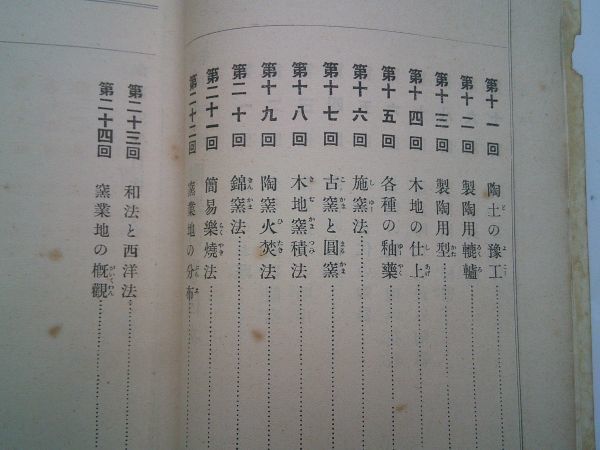 第十一回 陶土の豫工
第十二回 製陶用轆轤
第十三回 製陶用型
第十四回 木地の仕上
第十五回 各種の釉藥
第十六回 施窯法
第十七回 古窯と圓窯
第十八回 木地窯積法
第十九回 陶窯火焚法
第二十回 錦窯法
第二十一回 簡易樂燒法
第二十二回 窯業地の分布
第二十三回 和法と西洋法
第二十四回 窯業地の概觀